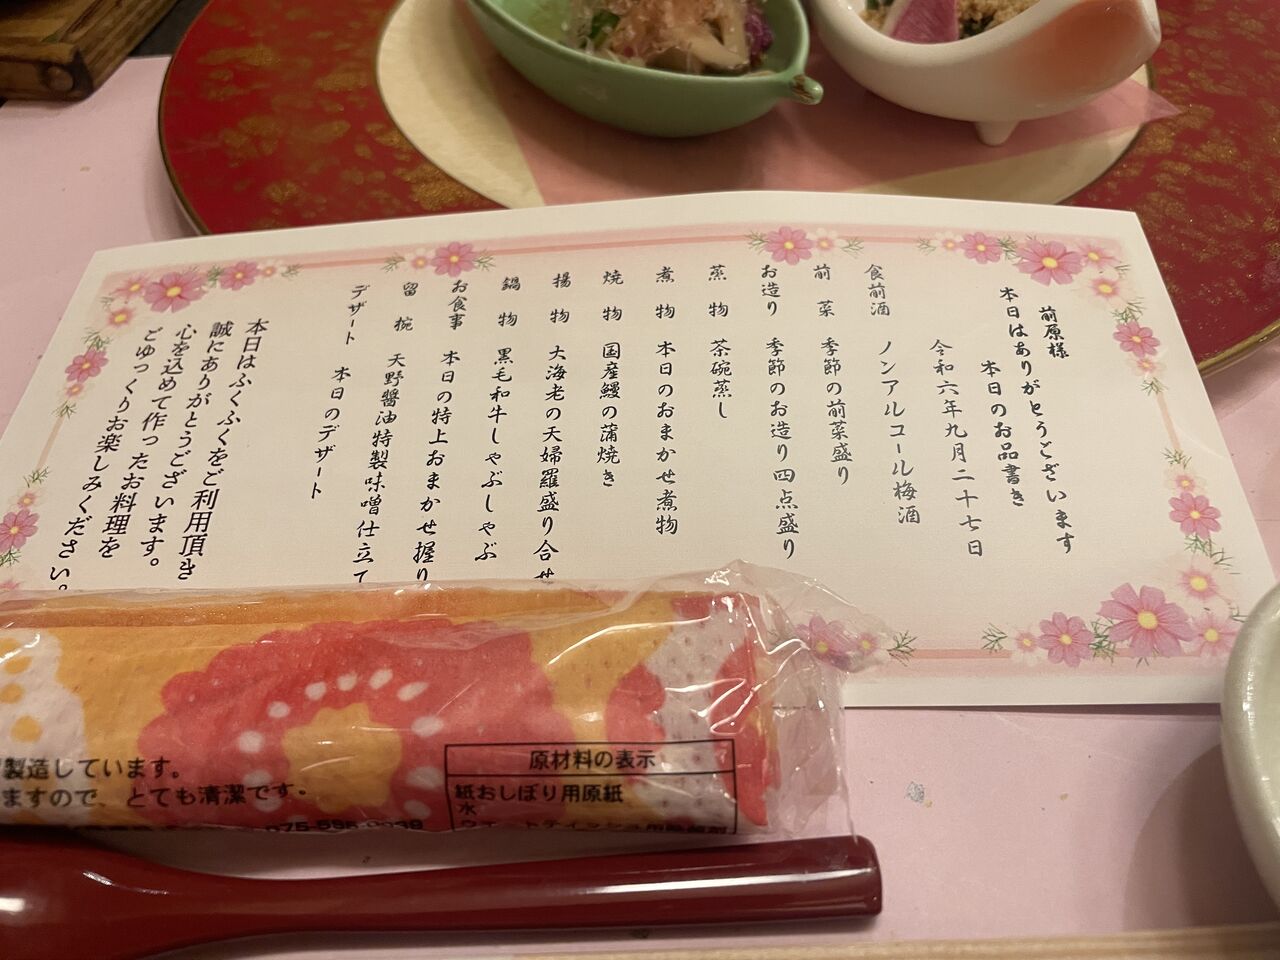 前原様
本日はありがとうございます
本日のお品書き
令和六年九月二十七日
食前酒 ノンアルコール梅酒
前菜 季節の前菜盛り
お造り 季節のお造り四点盛り
蒸物 茶碗蒸し
煮物 本日のおまかせ煮物
焼物 国産鰻の蒲焼き
揚物 大海老の天婦羅盛り合せ
鍋物 黒毛和牛しゃぶしゃぶ
お食事 本日の特上おまかせ握り
留椀 天野醬油特製味噌仕立て
デザート 本日のデザート
本日はふくふくをご利用頂き
誠にありがとうございます。
心を込めて作ったお料理を
ごゆっくりお楽しみください。
製造しています。
ますので、とても清潔です。
原材料の表示
紙おしぼり用原紙
水